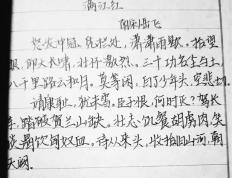 满江红
岳飞
怒发冲冠。凭栏处，潇潇雨歇。抬望
眼，仰天长啸，壮怀激烈。三十功名尘与土，
八千里路云和月。莫等闲，白了少年头，空悲切。
靖康耻，犹未雪。臣子恨，何时灭？驾长
车，踏破贺兰山缺。壮志饥餐胡虏肉，笑
谈渴饮匈奴血。待从头，收拾旧山河，朝
天阙。